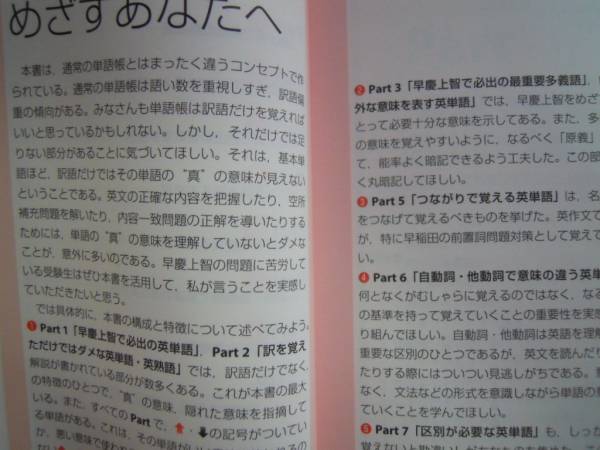 めざすあなたへ
本書は、通常の単語帳とはまったく違うコンセプトで作
られている。通常の単語帳は語い数を重視しすぎ、訳語偏
重の傾向がある。みなさんも単語帳は訳語だけを覚えれば
いいと思っているかもしれない。しかし、それだけでは足
りない部分があることに気づいてほしい。それは、基本単
語ほど、訳語だけではその単語の“真”の意味が見えない
ということである。英文の正確な内容を把握したり、空所
補充問題を解いたり、内容一致問題の正解を導いたりする
ためには、単語の“真”の意味を理解していないとダメな
ことが、意外に多いのである。早慶上智の問題に苦労して
いる受験生はぜひ本書を活用して、私が言うことを実感し
ていただきたいと思う。
では具体的に、本書の構成と特徴について述べてみよう。
❶ Part 1「早慶上智で必出の英単語」、Part 2「訳を覚え
ただけではダメな英単語・英熟語」では、訳語だけでなく、
解説が書かれている部分が数多くある。これが本書の最大
の特徴のひとつで、“真”の意味、隠れた意味を指摘して
いる。また、すべてのPartで、⬆・⬇の記号がついてい
る単語がある。これは、その単語が
か、悪い意味で使わ
❷ Part 3「早慶上智で必出の最重要多義語」、
外な意味を表す英単語」では、早慶上智をめざ
とって必要十分な意味を示してある。また、多
の意味を覚えやすいように、なるべく「原義」
て、能率よく暗記できるよう工夫した。この部
く丸暗記してほしい。
❸ Part 5「つながりで覚える英単語」は、名
をつなげて覚えるべきものを挙げた。英作文で
が、特に早稲田の前置詞問題対策として覚えて
い。
❹ Part 6「自動詞・他動詞で意味の違う英単
何となくがむしゃらに覚えるのではなく、なる
の基準を持って覚えていくことの重要性を実感
り組んでほしい。自動詞・他動詞は英語を理解
重要な区別のひとつであるが、英文を読んだり
たりする際にはついつい見逃しがちである。意
なく、文法などの形式を意識しながら単語の意
ていくことを学んでほしい。
❺ Part 7「区別が必要な英単語」も、しっか
覚えないと勘違いしがちなものを集めた。